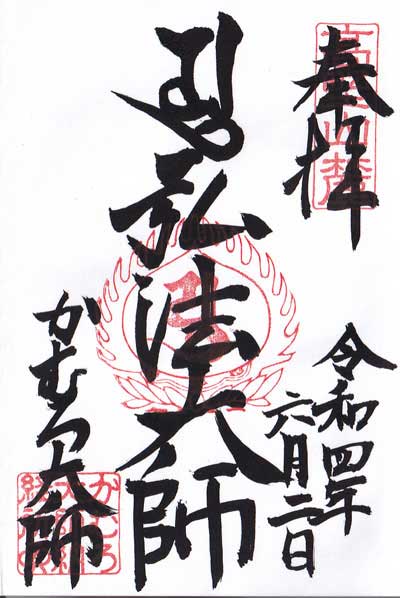 奉拝
高野山麓
令和四年
六月二日
弘法大師
かむろ大師